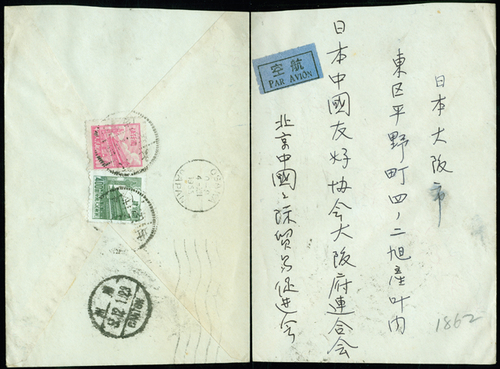 日本大阪市
東区平野町四ノ二旭産叶内
日本中國友好协会大阪府連合会
北京中國々际贸易促进会
空航
PAR AVION
1862
JAPAN